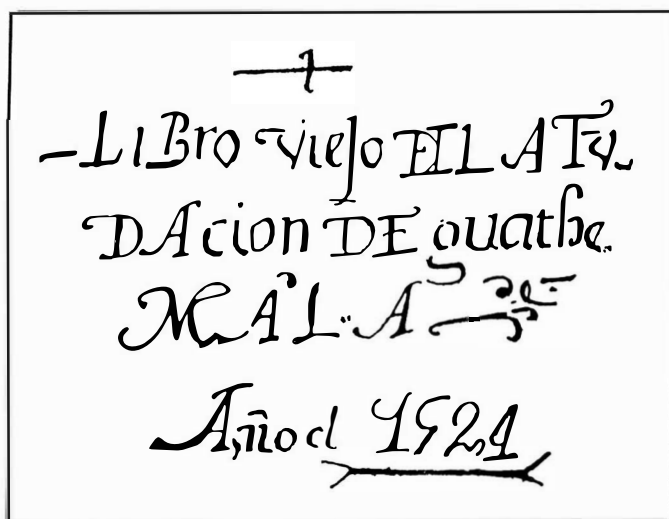 -LiBro viejo DELA Fu-
DAcion DE guathe.
MAL·A
Año d 1524